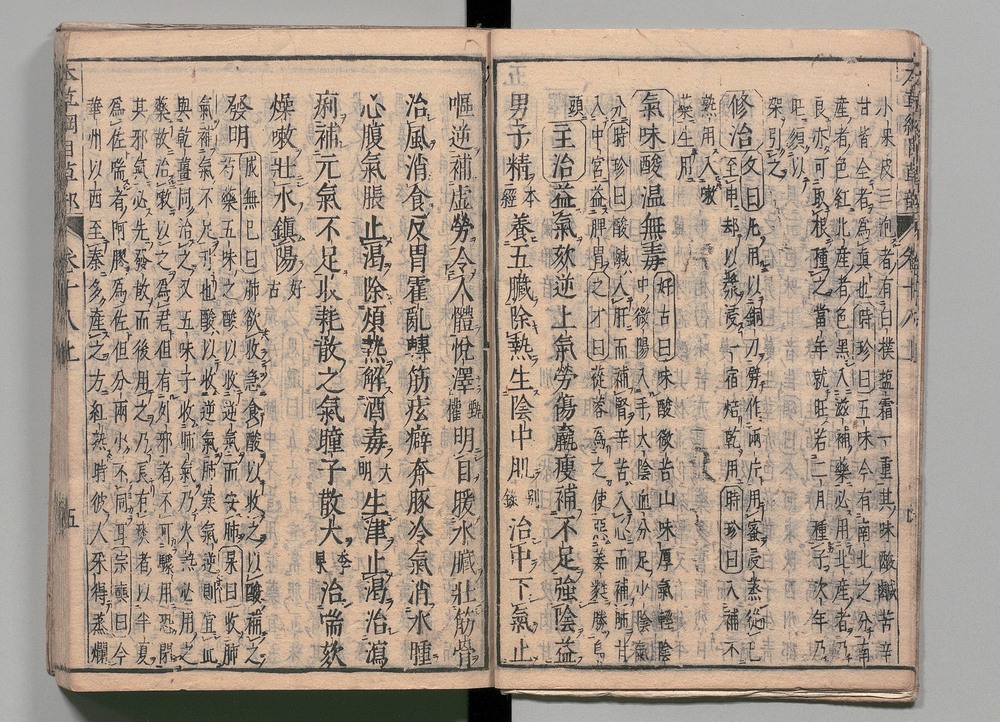 小果皮三泡者有白撲盬霜一重其味酸鹹苦辛
甘皆全者爲真也時珍曰五味今有南北之分南
産者色紅北産者色黑入滋補藥必用北産者乃
良亦可取根種之當年就旺若二月種子次年乃
旺須以架引之
修治 曰凡用以銅刀劈作兩片用蜜浸蒸從巳
至申却以漿浸一宿焙乾用時珍曰入補
藥熟用入嗽
藥生用
氣味酸温無毒好古曰味酸微苦味厚氣輕陰
中微陽入手太陰血分足少陰氣
分時珍曰酸鹹入肝而補腎辛苦入心而補肺甘
入中宮益脾胃之才曰蓯蓉爲之使惡萎蕤勝烏
頭
主治益氣欬逆上氣勞傷羸瘦補不足強陰益
男子精本經養五臟除熱生陰中肌別錄治中下氣止
嘔逆補虛勞令人體悅澤甄權明目暖水臟壯筋骨
治風消食反胃霍亂轉筋痃癖奔豚冷氣消水腫
心腹氣脹止渴除煩熱解酒毒大明生津止渴治瀉
痢補元氣不足收耗散之氣瞳子散大李杲治喘欬
燥嗽壯水鎮陽好古
發明成無己曰肺欲收急食酸以收之以酸補之
芍藥五味之酸以收逆氣而安肺杲曰收肺
氣補氣不足升也酸以收逆氣肺寒氣逆則宜此
與乾薑同治之又五味子收肺氣乃火熱必用之
藥故治嗽以之爲君但有外邪者不可驟用恐閉
其邪氣必先發散而後用之乃良有痰者以半夏
爲佐喘者阿膠爲佐但分兩少不同耳宗奭曰今
華州以西至秦多産之方紅熟時彼人采得蒸爛
本草綱目草部
卷十八上
五